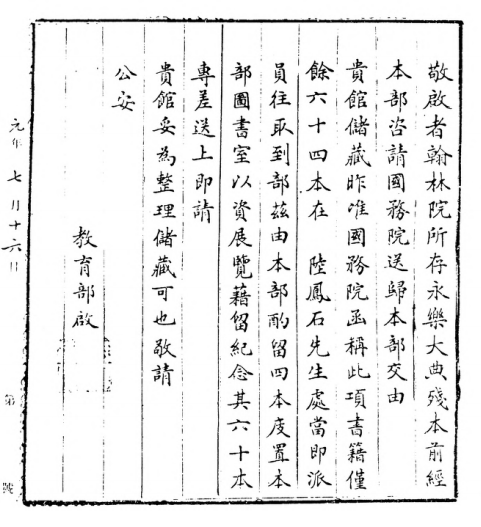 敬啟者翰林院所存永樂大典殘本前經
本部咨請國務院送歸本部交由
貴館儲藏昨准國務院函稱此項書籍僅
餘六十四本在 陸鳳石先生處當即派
員往取到部茲由本部酌留四本庋置本
部圖書室以資展覽藉留紀念其六十本
專差送上即請
貴館妥為整理儲藏可也敬請
公安
教育部啟
元年 七月十六日
第 號